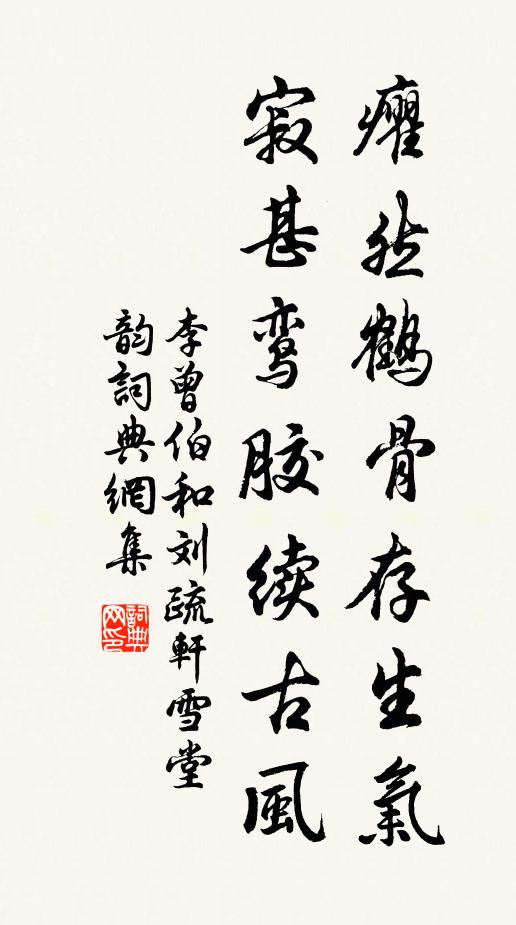 癯然鶴骨存生氣
寂甚鸾胶续古風
李曾伯和刘疏軒雪堂
韵詞典網集
詞典网印